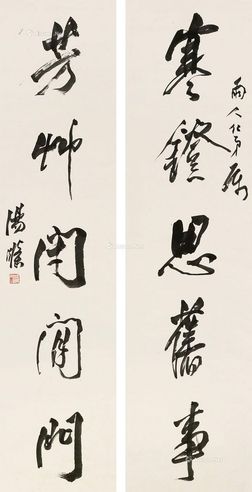 雨人仁弟屬
寒鐙思舊事
芳艸閉閒門
湯滌